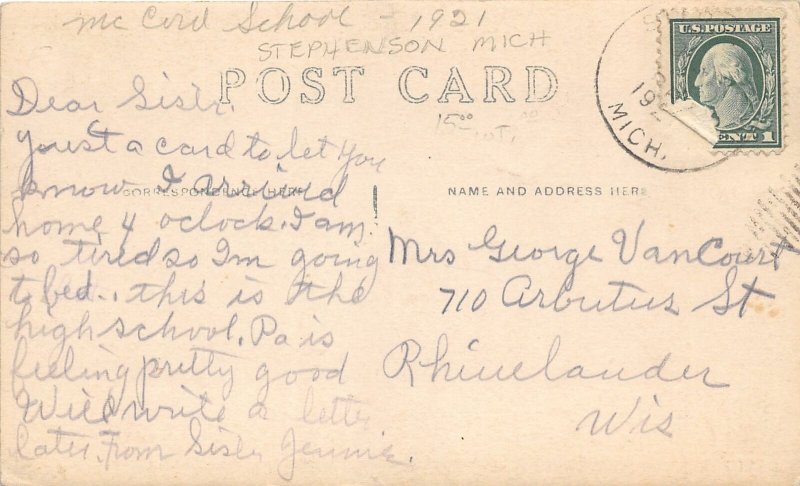 Mc Cord School - 1921
STEPHENSON MICH
POST CARD
U.S. POSTAGE
CENT 1
192
MICH.
15.00
Dear Sister
Just a card to let you
know I arrived
CORRESPONDENCE HERE
NAME AND ADDRESS HERE
home 4 oclock. I am
so tired so Im going
to bed.. this is the
high school. Pa is
feeling pretty good
Will write a letter
later. From Sister Jennie.
Mrs George VanCourt
710 Arbutus St
Rhinelander
Wis